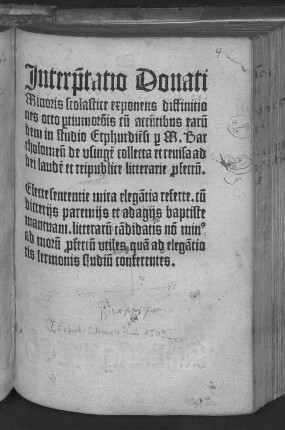 4
Interp̄tatio Donati
Minoris scolastice exponens diffinitio
nes octo ptiumorōis cū accn̄tibus earū
dem in studio Erphurdiēsi ꝑ M. Bar
tholomeū de vsingē collecta et reuisa ad
dei laudē et reipublice litterarie ꝓfectū.
Electe sententie mira elegātia referte. cū
dicterijs paremijs et adagijs baptiste
mantuani. litterarū cādidatis nō min⁹
ad morū ꝓfectū vtiles, quā ad elegātio
ris sermonis studiū conferentes.
1505